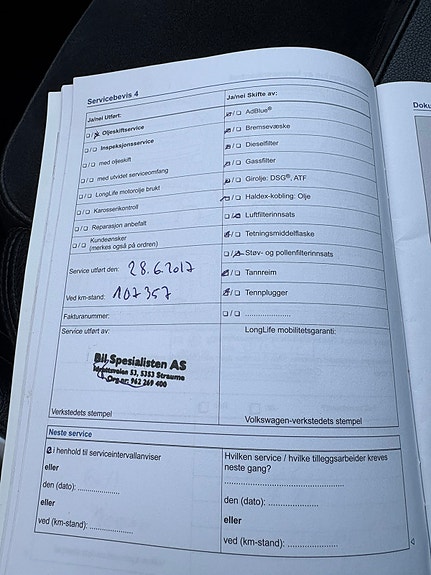 Servicebevis 4
Ja/nei Utført:
/ Oljeskiftservice
/ Inspeksjonsservice
/ med oljeskift
/ med utvidet serviceomfang
/ LongLife motorolje brukt
/ Karosserikontroll
/ Reparasjon anbefalt
/ Kundeønsker
(merkes også på ordren)
Service utført den: 28.6.2017
Ved km-stand: 107357
Fakturanummer:
Service utført av:
Bil Spesialisten AS
Idrettsveien 53, 5353 Straume
Org.nr: 962 269 400
Verkstedets stempel
Ja/nei Skifte av:
/ AdBlue®
/ Bremsevæske
/ Dieselfilter
/ Gassfilter
/ Girolje: DSG®, ATF
/ Haldex-kobling: Olje
/ Luftfilterinnsats
/ Tetningsmiddelflaske
/ Støv- og pollenfilterinnsats
/ Tannreim
/ Tennplugger
/ .....................
LongLife mobilitetsgaranti:
Volkswagen-verkstedets stempel
Neste service
i henhold til serviceintervallanviser
eller
den (dato): ..................
eller
ved (km-stand): ..................
Hvilken service / hvilke tilleggsarbeider kreves
neste gang?
.............................................
den (dato): .....................
eller
ved (km-stand): .....................
Doku